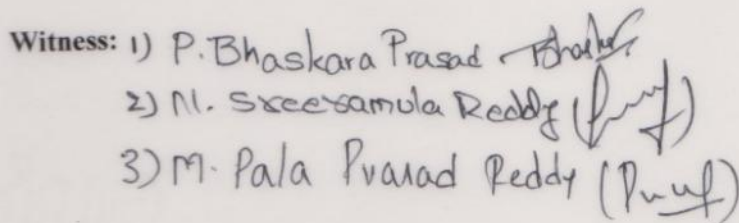 Witness: 1) P. Bhaskara Prasad
2) M. Sreeramula Reddy
3) M. Pala Prasad Reddy